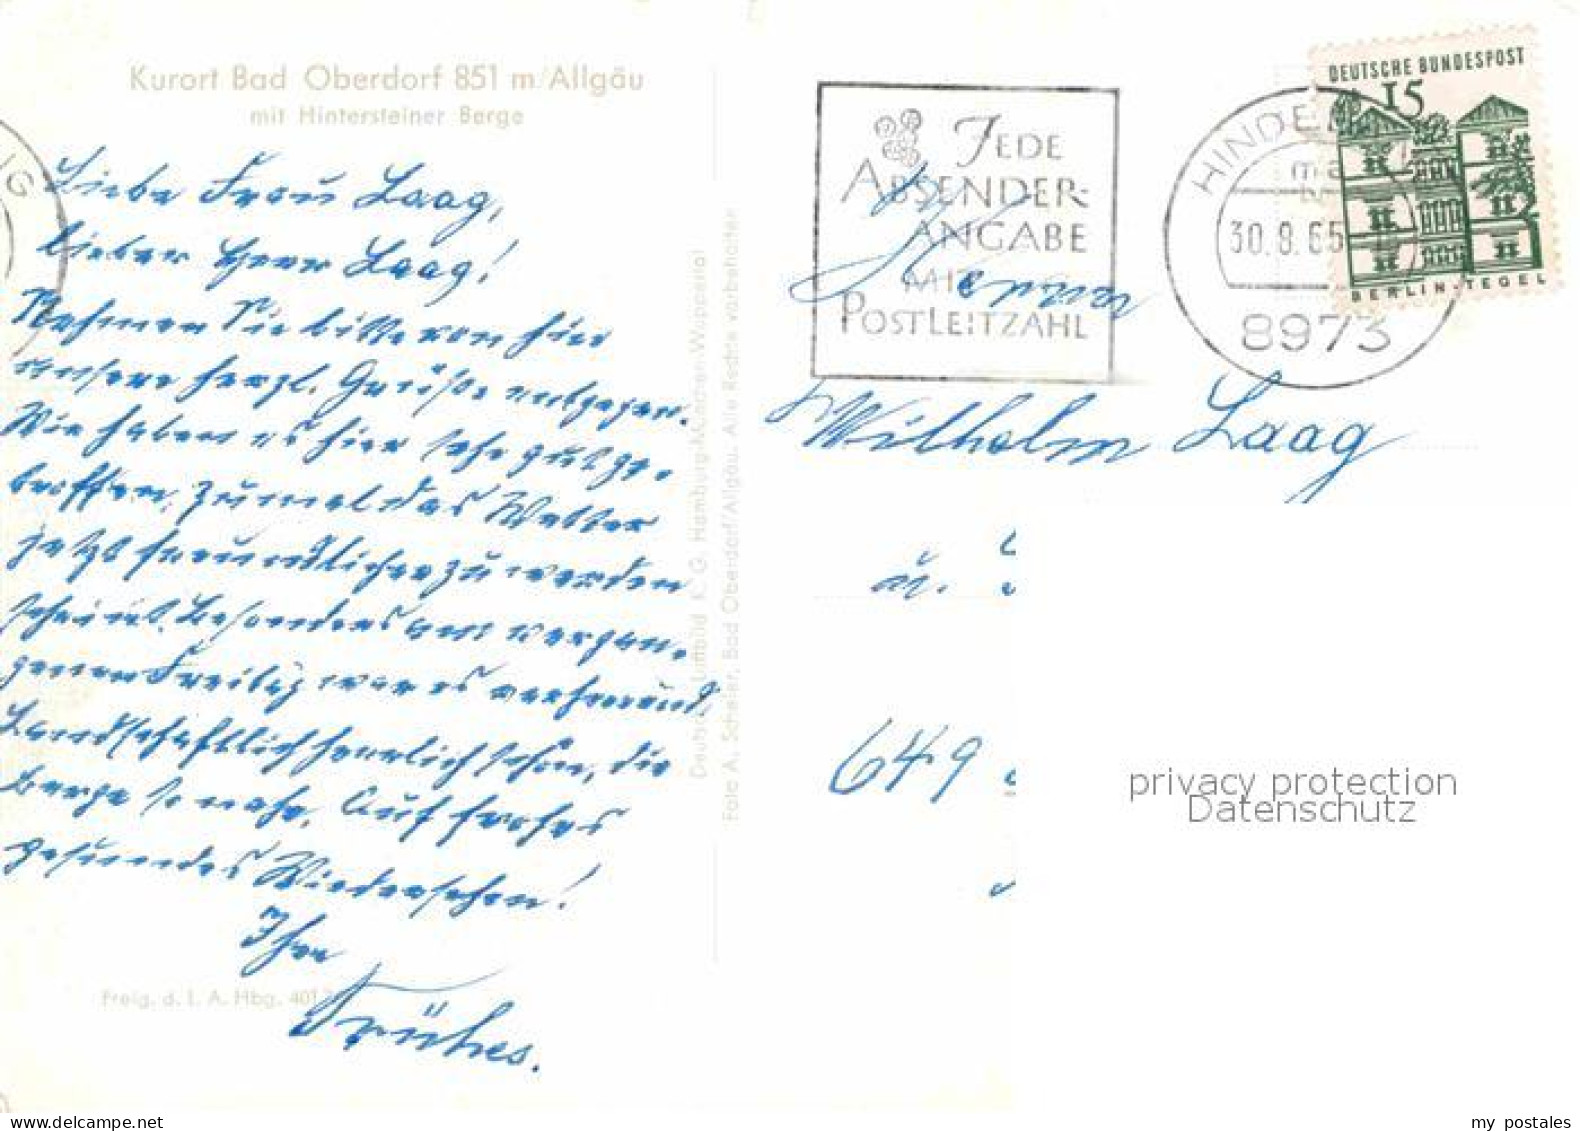 Kurort Bad Oberdorf 851 m/Allgäu
mit Hintersteiner Berge
Liebe Frau Laag,
lieber Herr Laag!
Nehmen Sie bitte von hier
unsere herzl. Grüße entgegen.
Wir haben es hier sehr gut ge-
troffen, zumal das Wetter
jetzt freundlicher zu werden
scheint. Besonders am vergan-
genen Freitag war es
Landschaftlich herrlich schön, die
Berge so nahe. Auf frohes
gesundes Wiedersehen!
Ihre
Frühes.
Freig. d. I. A. Hbg. 401
Deutsche Luftbild K. G. Hamburg-München-Wuppertal
Foto A. Scheler, Bad Oberdorf/Allgäu. Alle Rechte vorbehalten
JEDE
ABSENDER-
ANGABE
MIT
POSTLEITZAHL
HINDEL
30.8.65
8973
DEUTSCHE BUNDESPOST
15
BERLIN-TEGEL
Wilhelm Laag
u.
649
privacy protection
Datenschutz
my postales